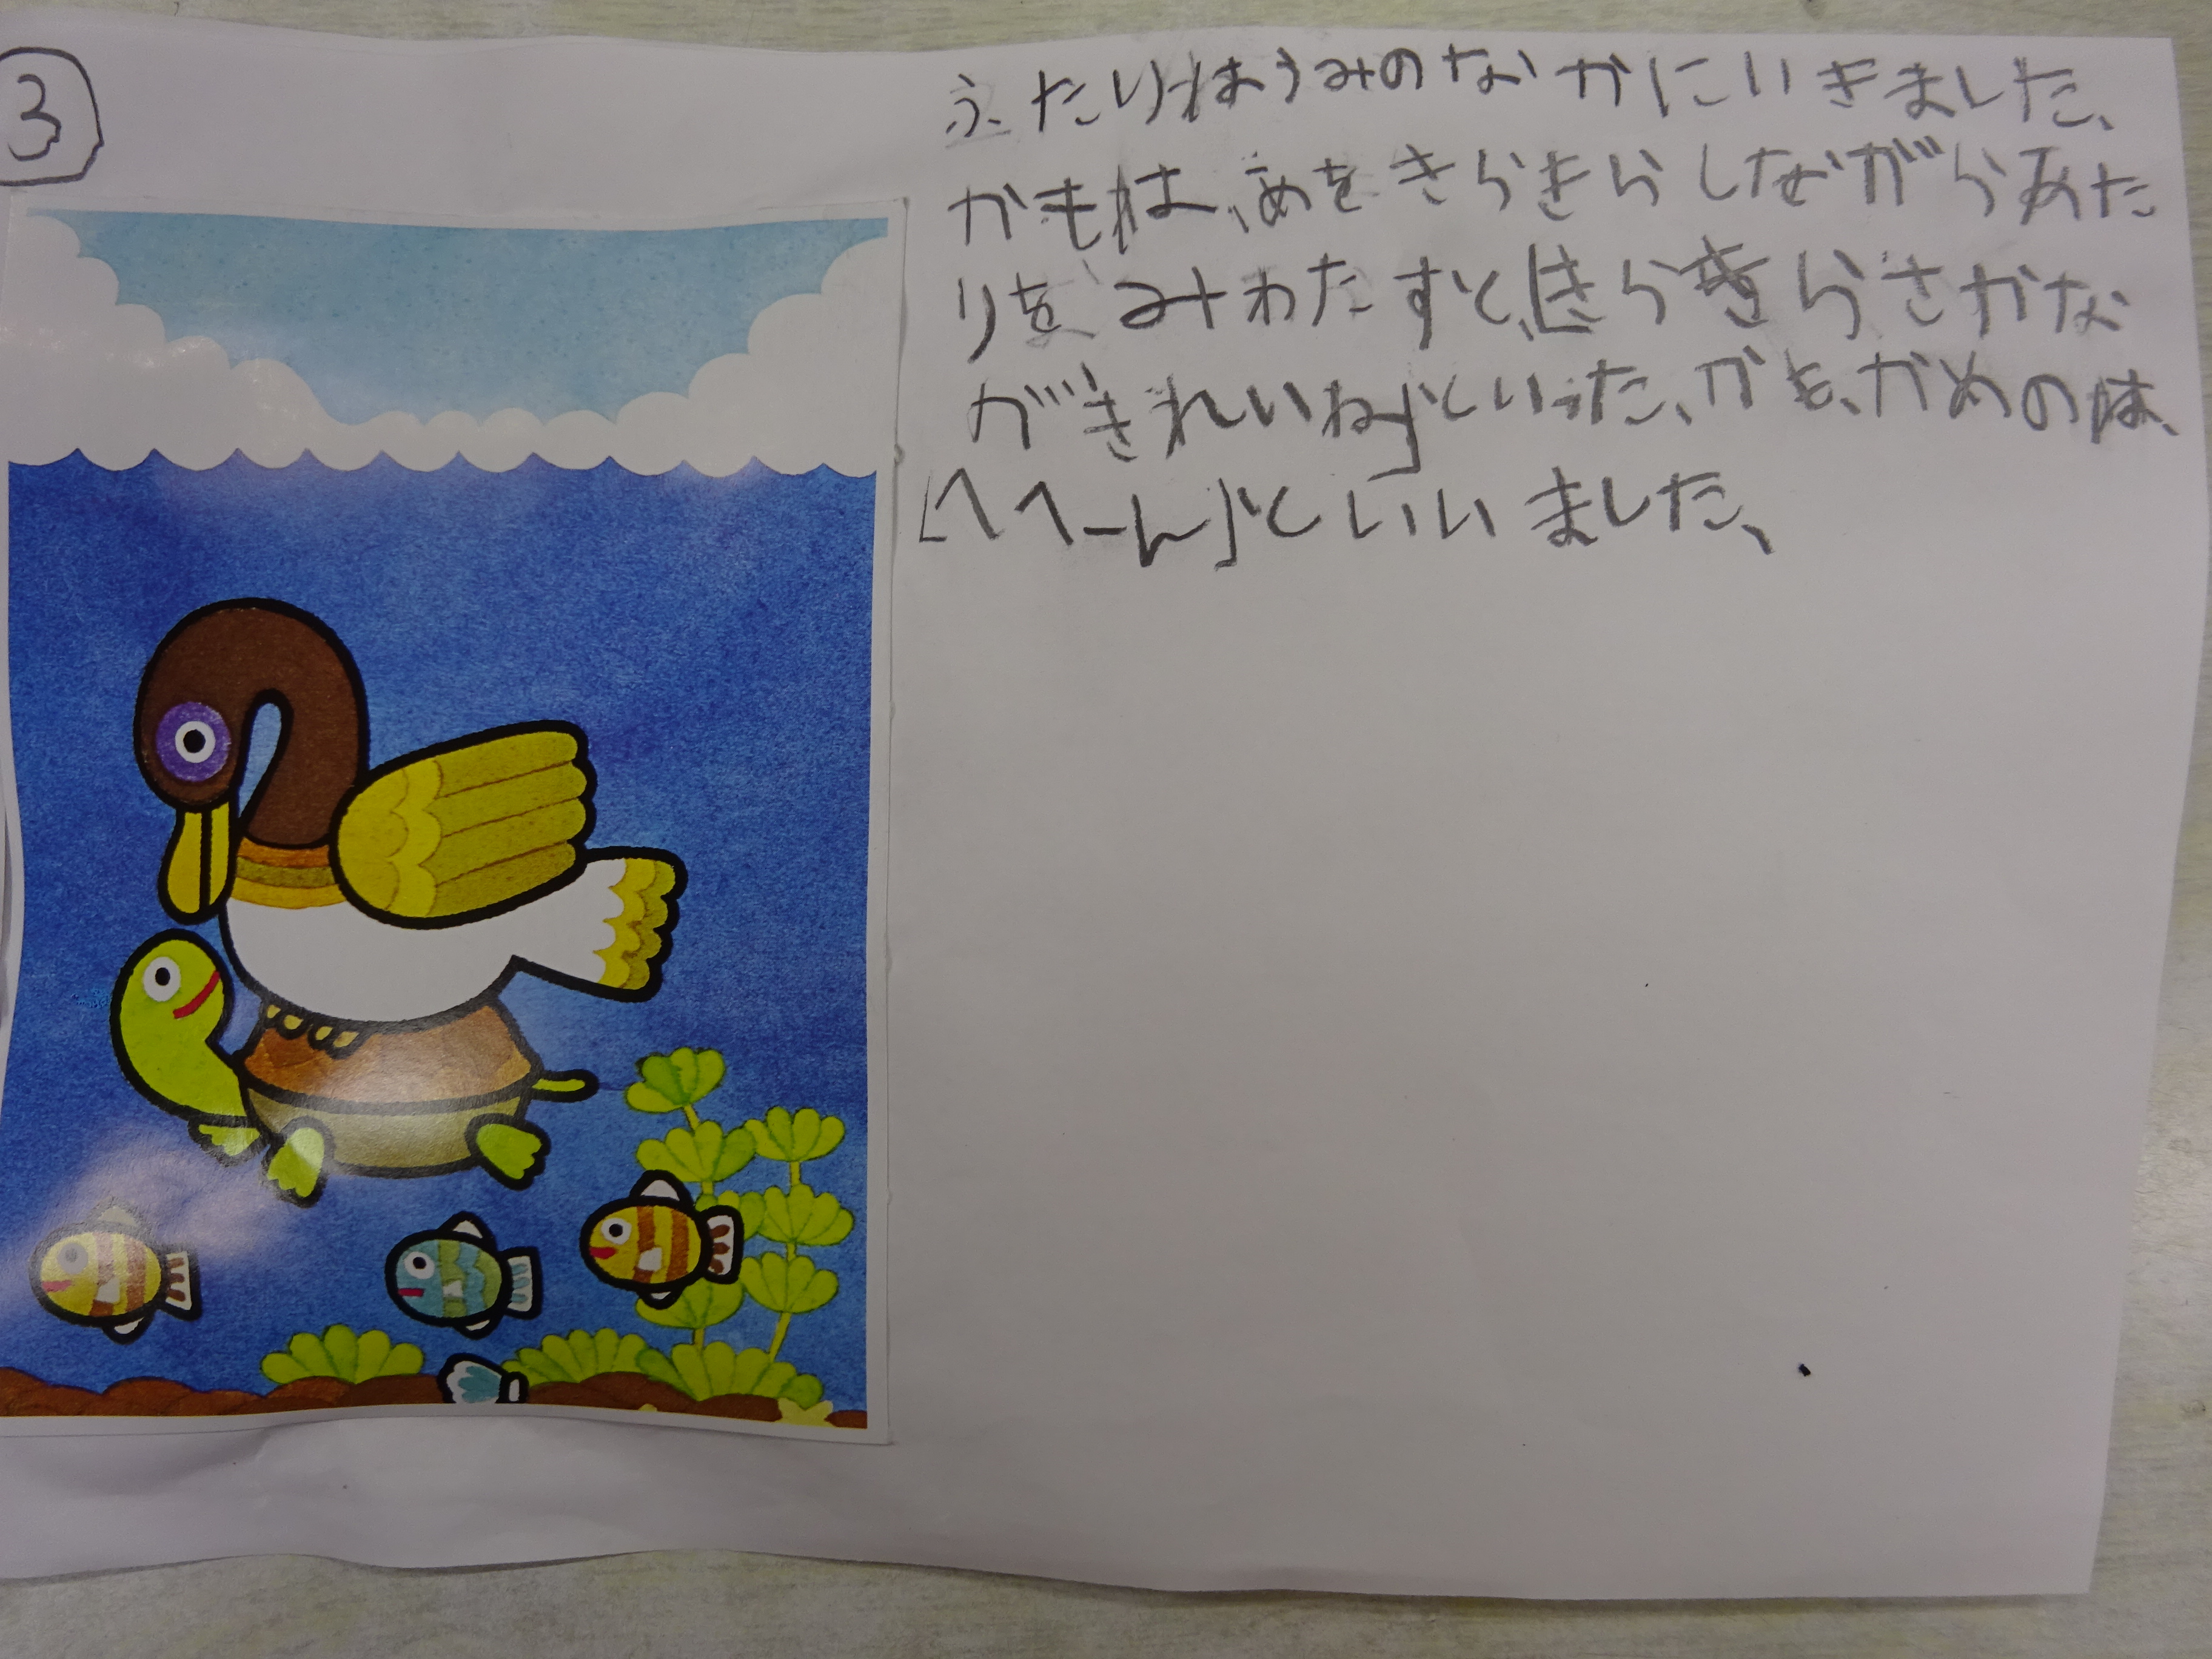 3
ふたりはうみのなかにいきました、
かもは、めをきらきらしながらあた
りを、みわたすと、「きらきらさかな
がきれいね」といった、かも、かめのは、
「へへーん」といいました、